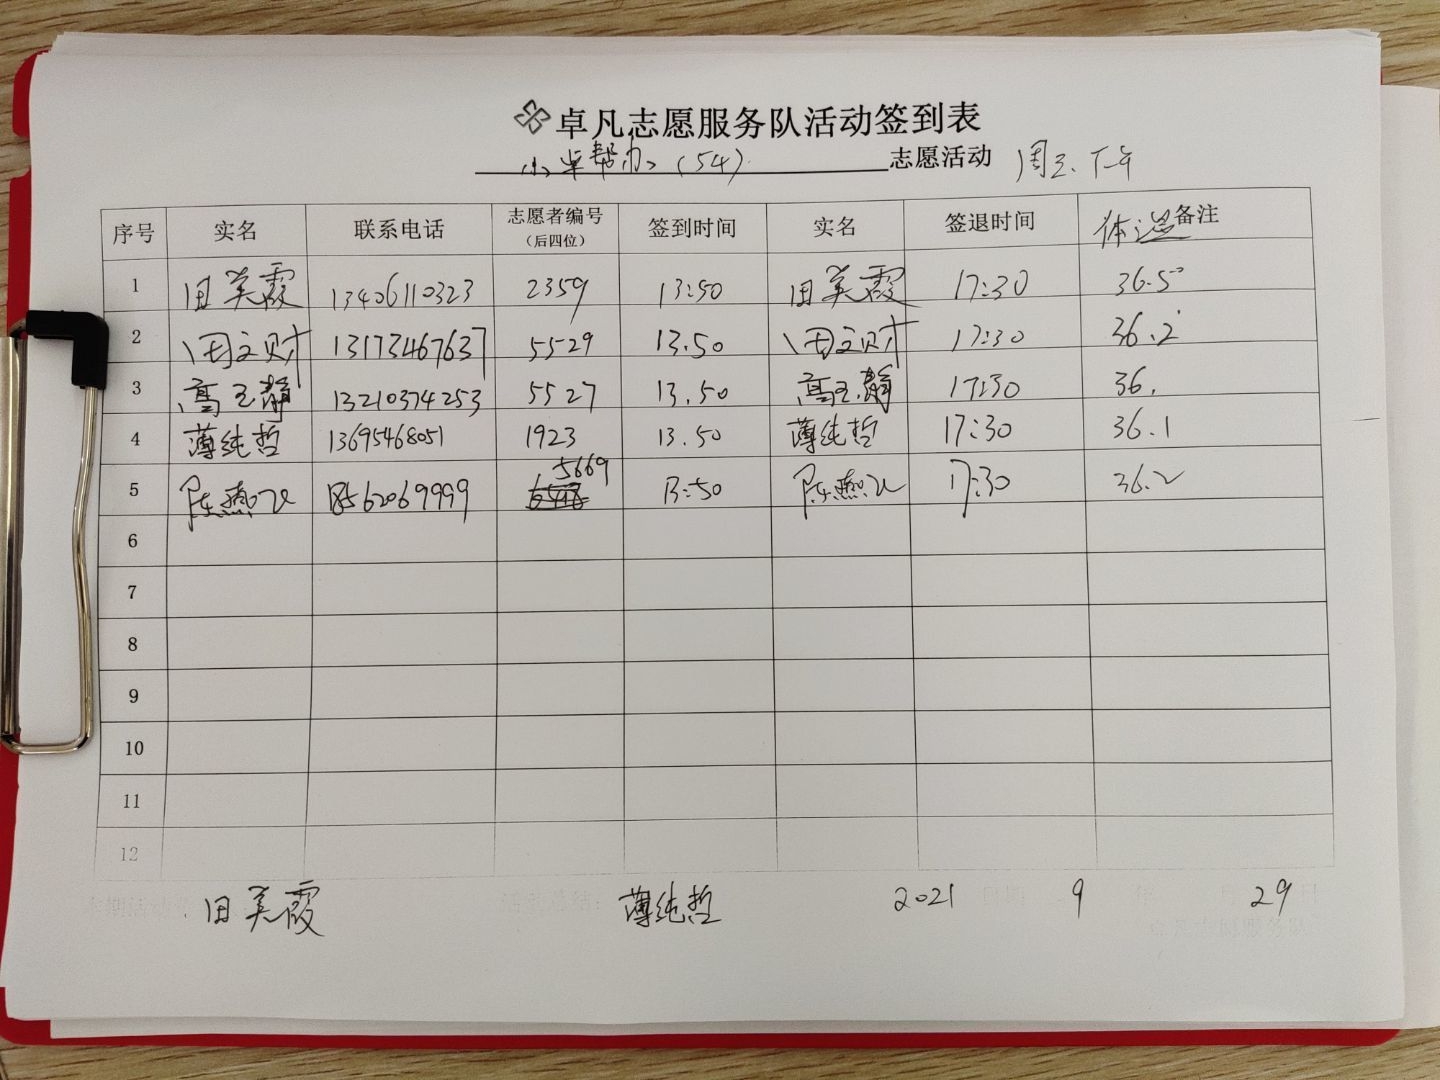 卓凡志愿服务队活动签到表
小卓帮办（54） 志愿活动 周三下午
序号 实名 联系电话 志愿者编号（后四位） 签到时间 实名 签退时间 体温 备注
1 田美霞 13406110323 2359 13:50 田美霞 17:30 36.5
2 5529 13.50 17:30 36.2
3 高玉静 13210374253 5527 13.50 高玉静 17:30 36.
4 薄纯哲 13695468051 1923 13.50 薄纯哲 17:30 36.1
5 陈燕飞 18562069999 5669 13:50 陈燕飞 17:30 36.2
6
7
8
9
10
11
12
田美霞 薄纯哲 2021 9 29